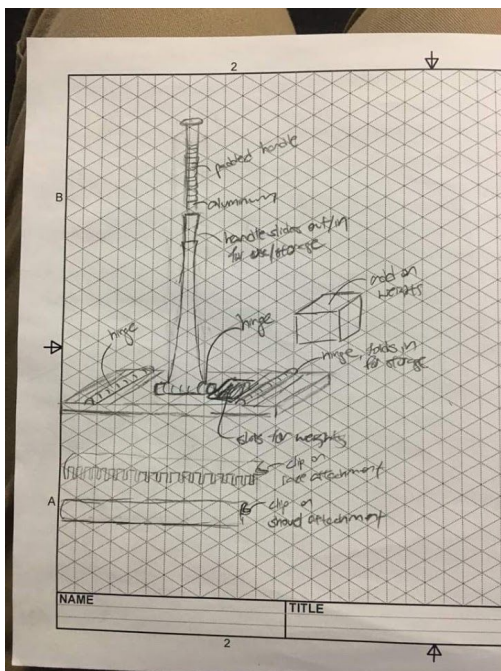 2
B
padded handle
aluminum
handle slides out/in
for use/storage
add on
weights
hinge
hinge
hinge, folds in
for storage
slots for weights
clip on
rake attachment
A
clip on
shovel attachment
NAME
TITLE
2